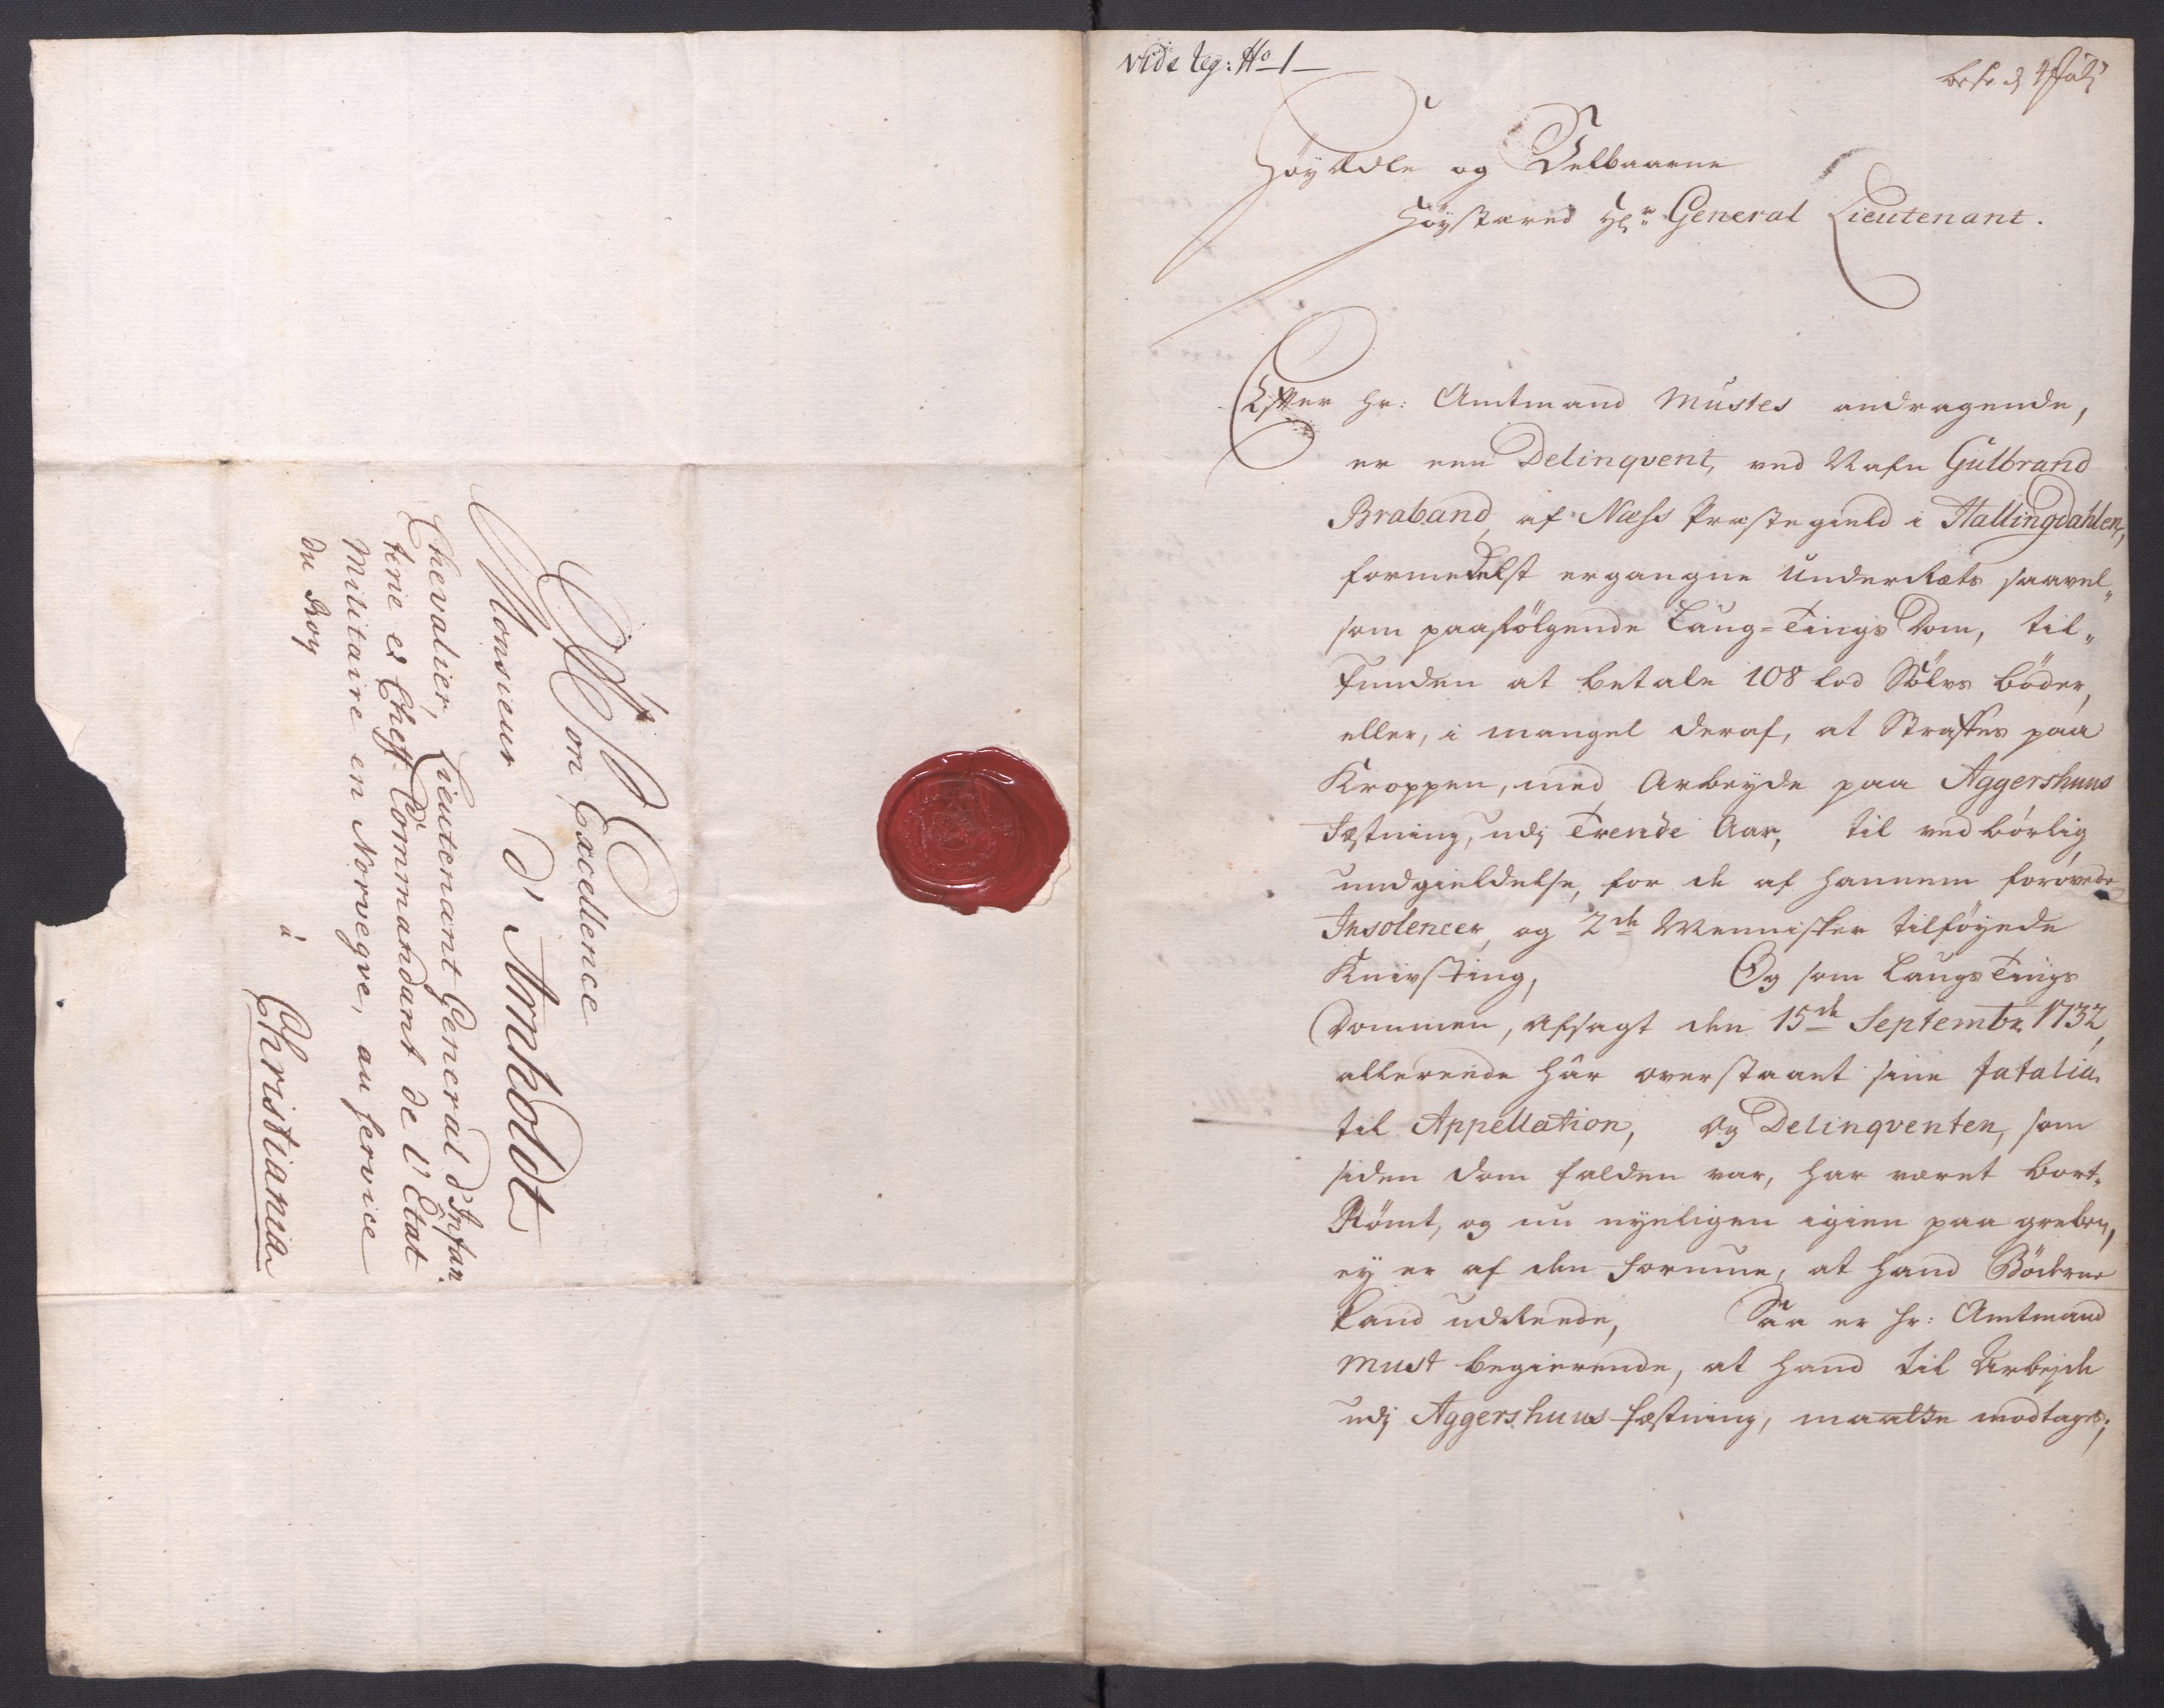 A Son Excellence
Monsieur d'Arnholdt
Chevalier, Lieutenant General d'Infan:
terie et Cheff Commandant de l'Etat
Militaire en Norvegve, au service
du Roy
à Christiania
vide leg: No 1
besv. d 4 Julj
HöyÆdle og Velbaarne
Höystæred Hr General Lieutenant.
Efter Hr: Amtmand Mustes andragende,
er een Delinqvent, ved Nafn Gulbrand
Braband, af Næss Præstegield i Hallingdahlen,
formedelst ergangne UnderRæts saavel„
som paafölgende Laug=Tings Dom, til„
funden at betale 108 Lod Sölvs böder,
eller, i mangel deraf, at Straffes paa
Kroppen, med Arbeyde paa Aggershuus
Fæstning, udj Trende Aar, til ved börlig
undgieldelse, for de af hannem forövede
Insolencer, og 2de Mennisker tilföyede
Knivsting, Og som Laugs Tings
Dommen, afsagt den 15de Septembr 1732,
allereede hâr overstaaet sine fatalia
til Appellation, og Delinqventen, som
siden Dom falden var, har været bort„
Römt, og nu nyeligen igien paagreben,
ey er af den formue, at hand Böderne
kand udreede, Saa er Hr: Amtmand
Must begierende, at hand til Arbejde
udj Aggershuus fæstning, maatte modtages;